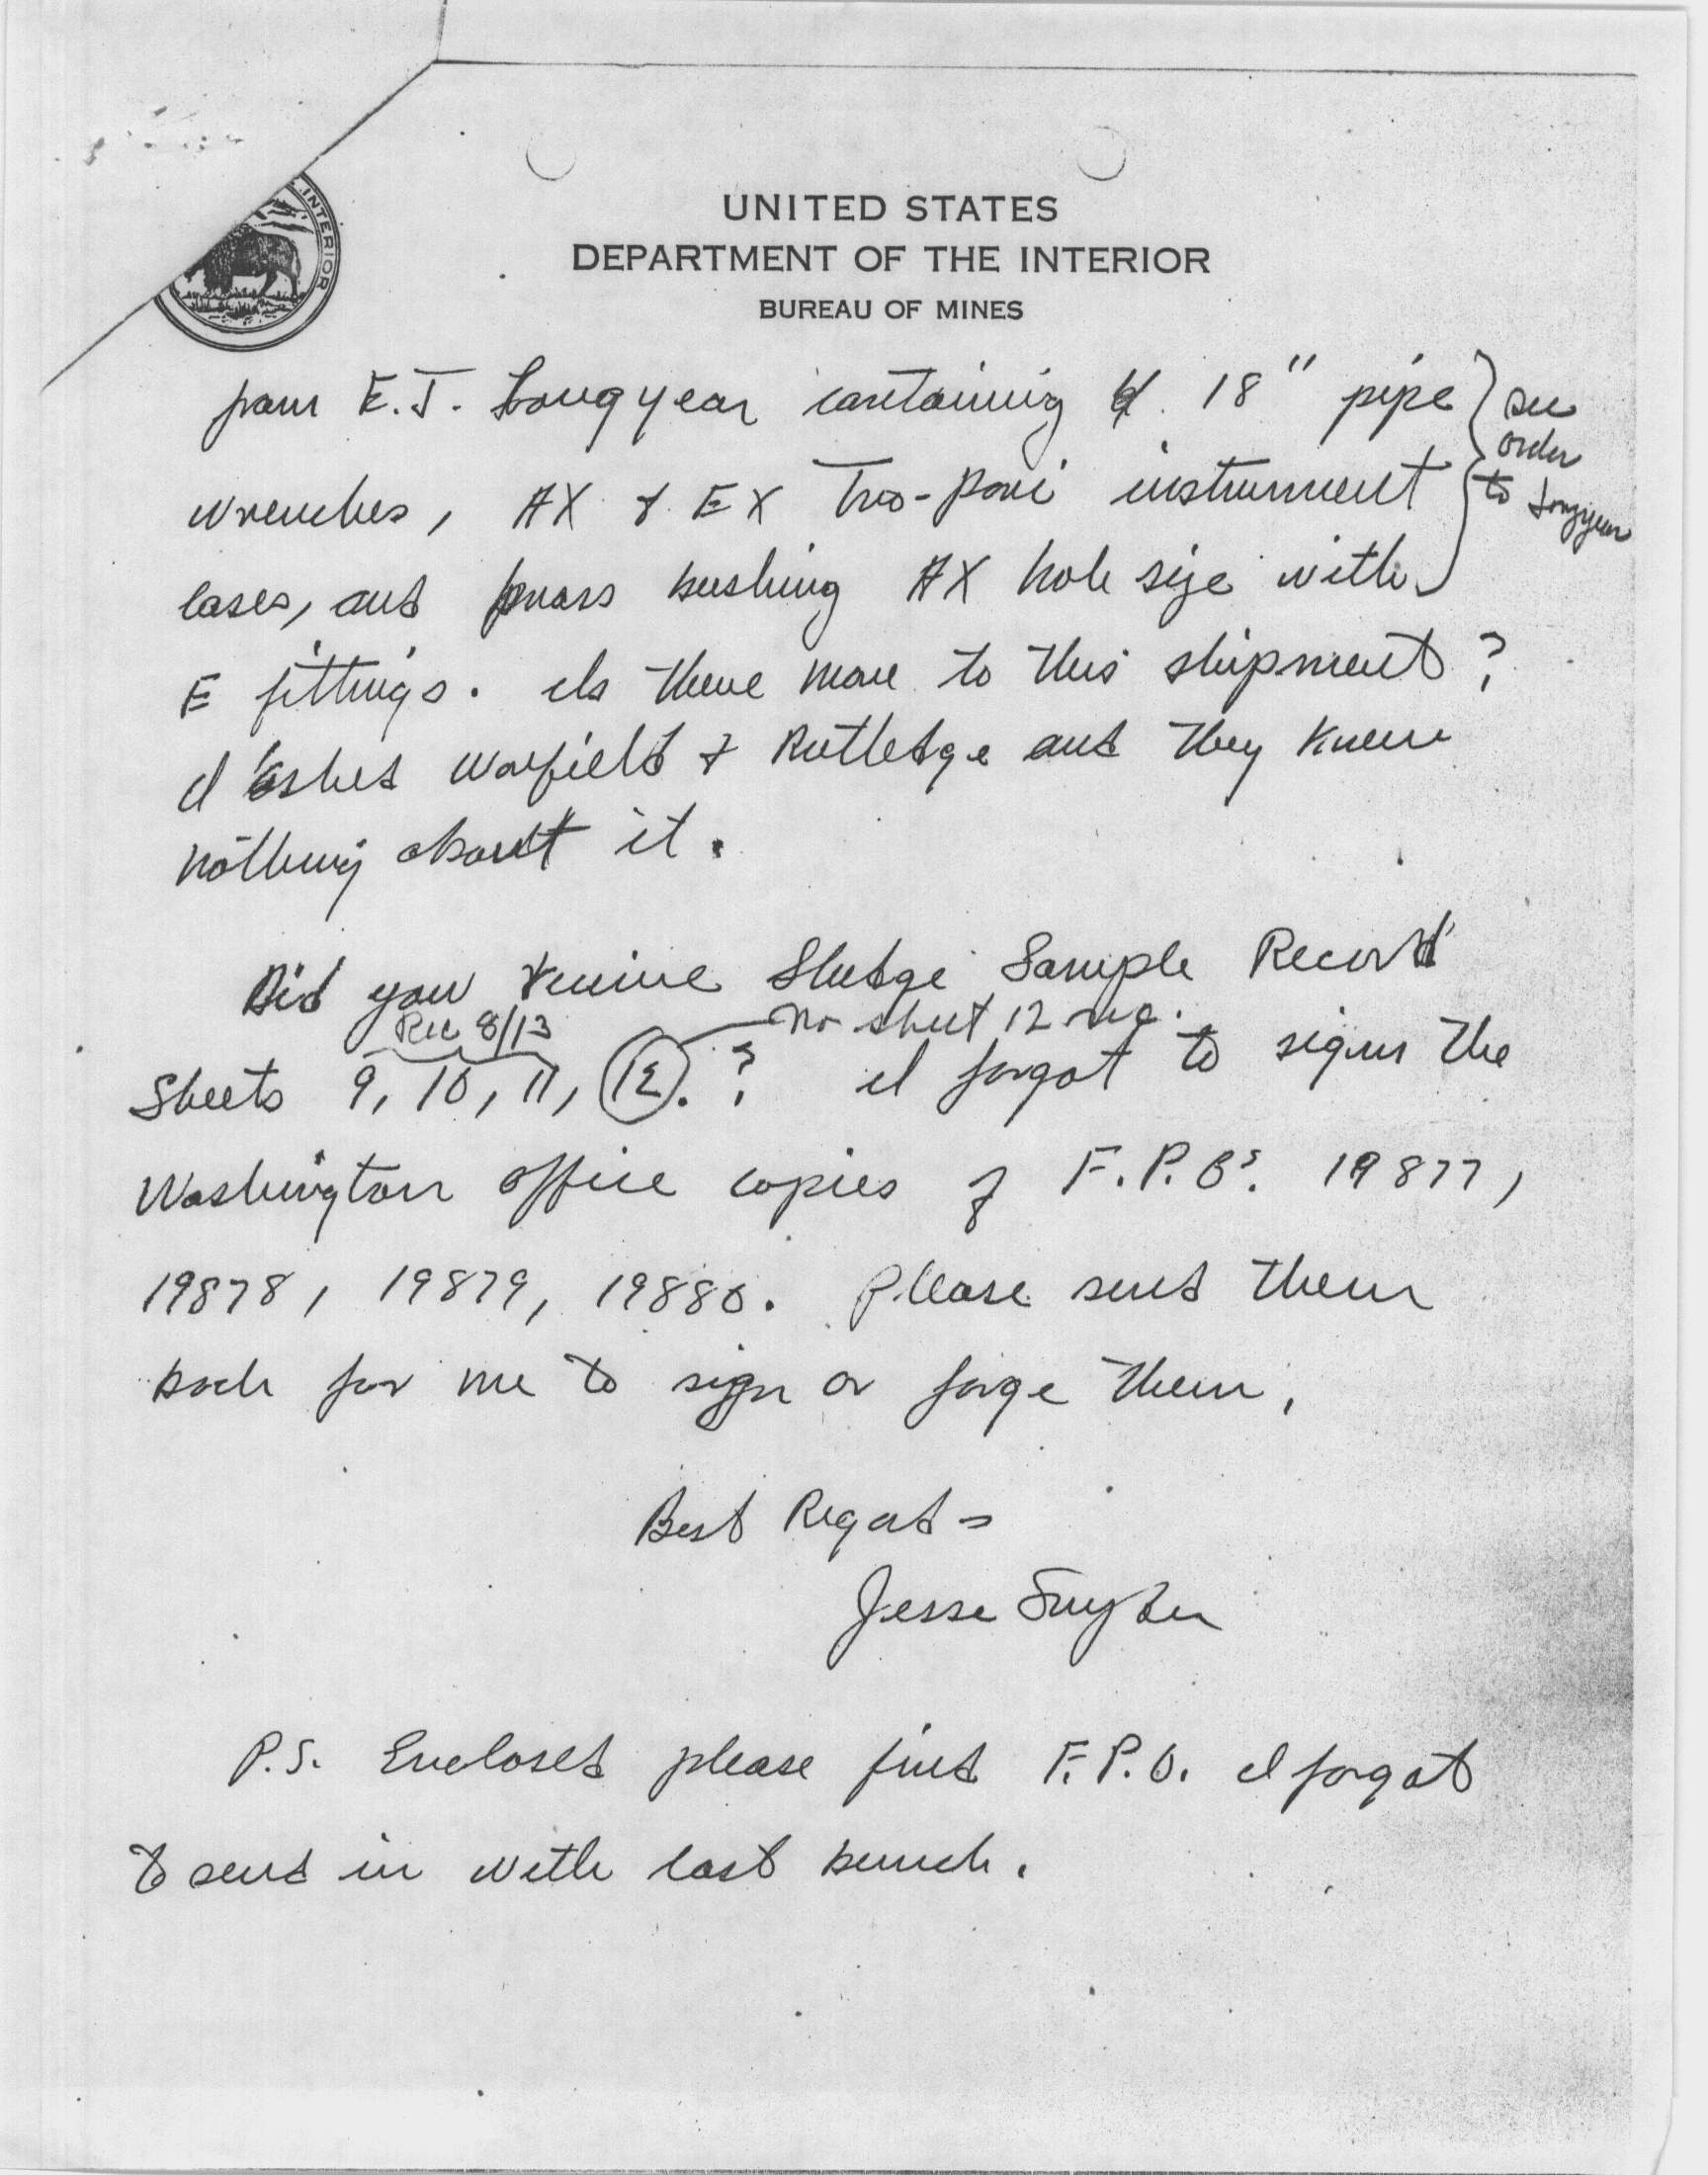 INTERIOR
UNITED STATES
DEPARTMENT OF THE INTERIOR
BUREAU OF MINES
from E.J. Longyear containing 18" pipe
wrenches, AX & EX Two-pari instrument
cases, and brass bushing AX hole size with
E fittings. Is there more to this shipment?
see
order
to Longyear
I asked Warfield & Rutledge and they knew
nothing about it.
Did you receive Sludge Sample Record
Rec 8/13
no sheet 12 rec.
Sheets 9, 10, 11, 12. ? I forgot to sign the
Washington office copies of F.P.O's. 19877,
19878, 19879, 19880. Please send them
back for me to sign or forge them.
Best Regards
Jesse Snyder
P.S. Enclosed please find F.P.O. I forgot
to send in with last bunch.